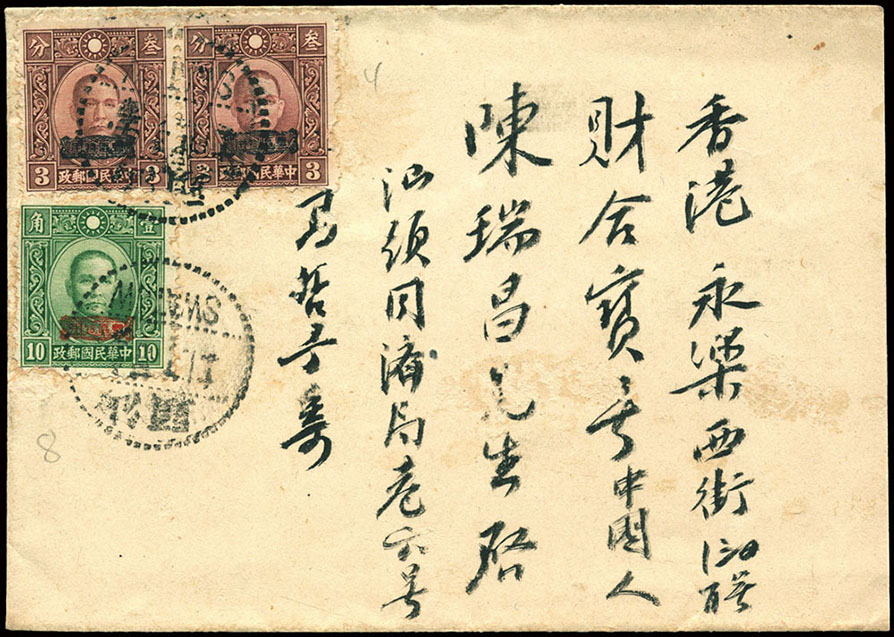 香港永樂西街
財合寶号中國人
陳瑞昌先生啓
汕頭同濟局巷六号
哲子寄
叁分
3 中華民國郵政 3
叁分
3 中華民國郵政 3
壹角
10 中華民國郵政 10